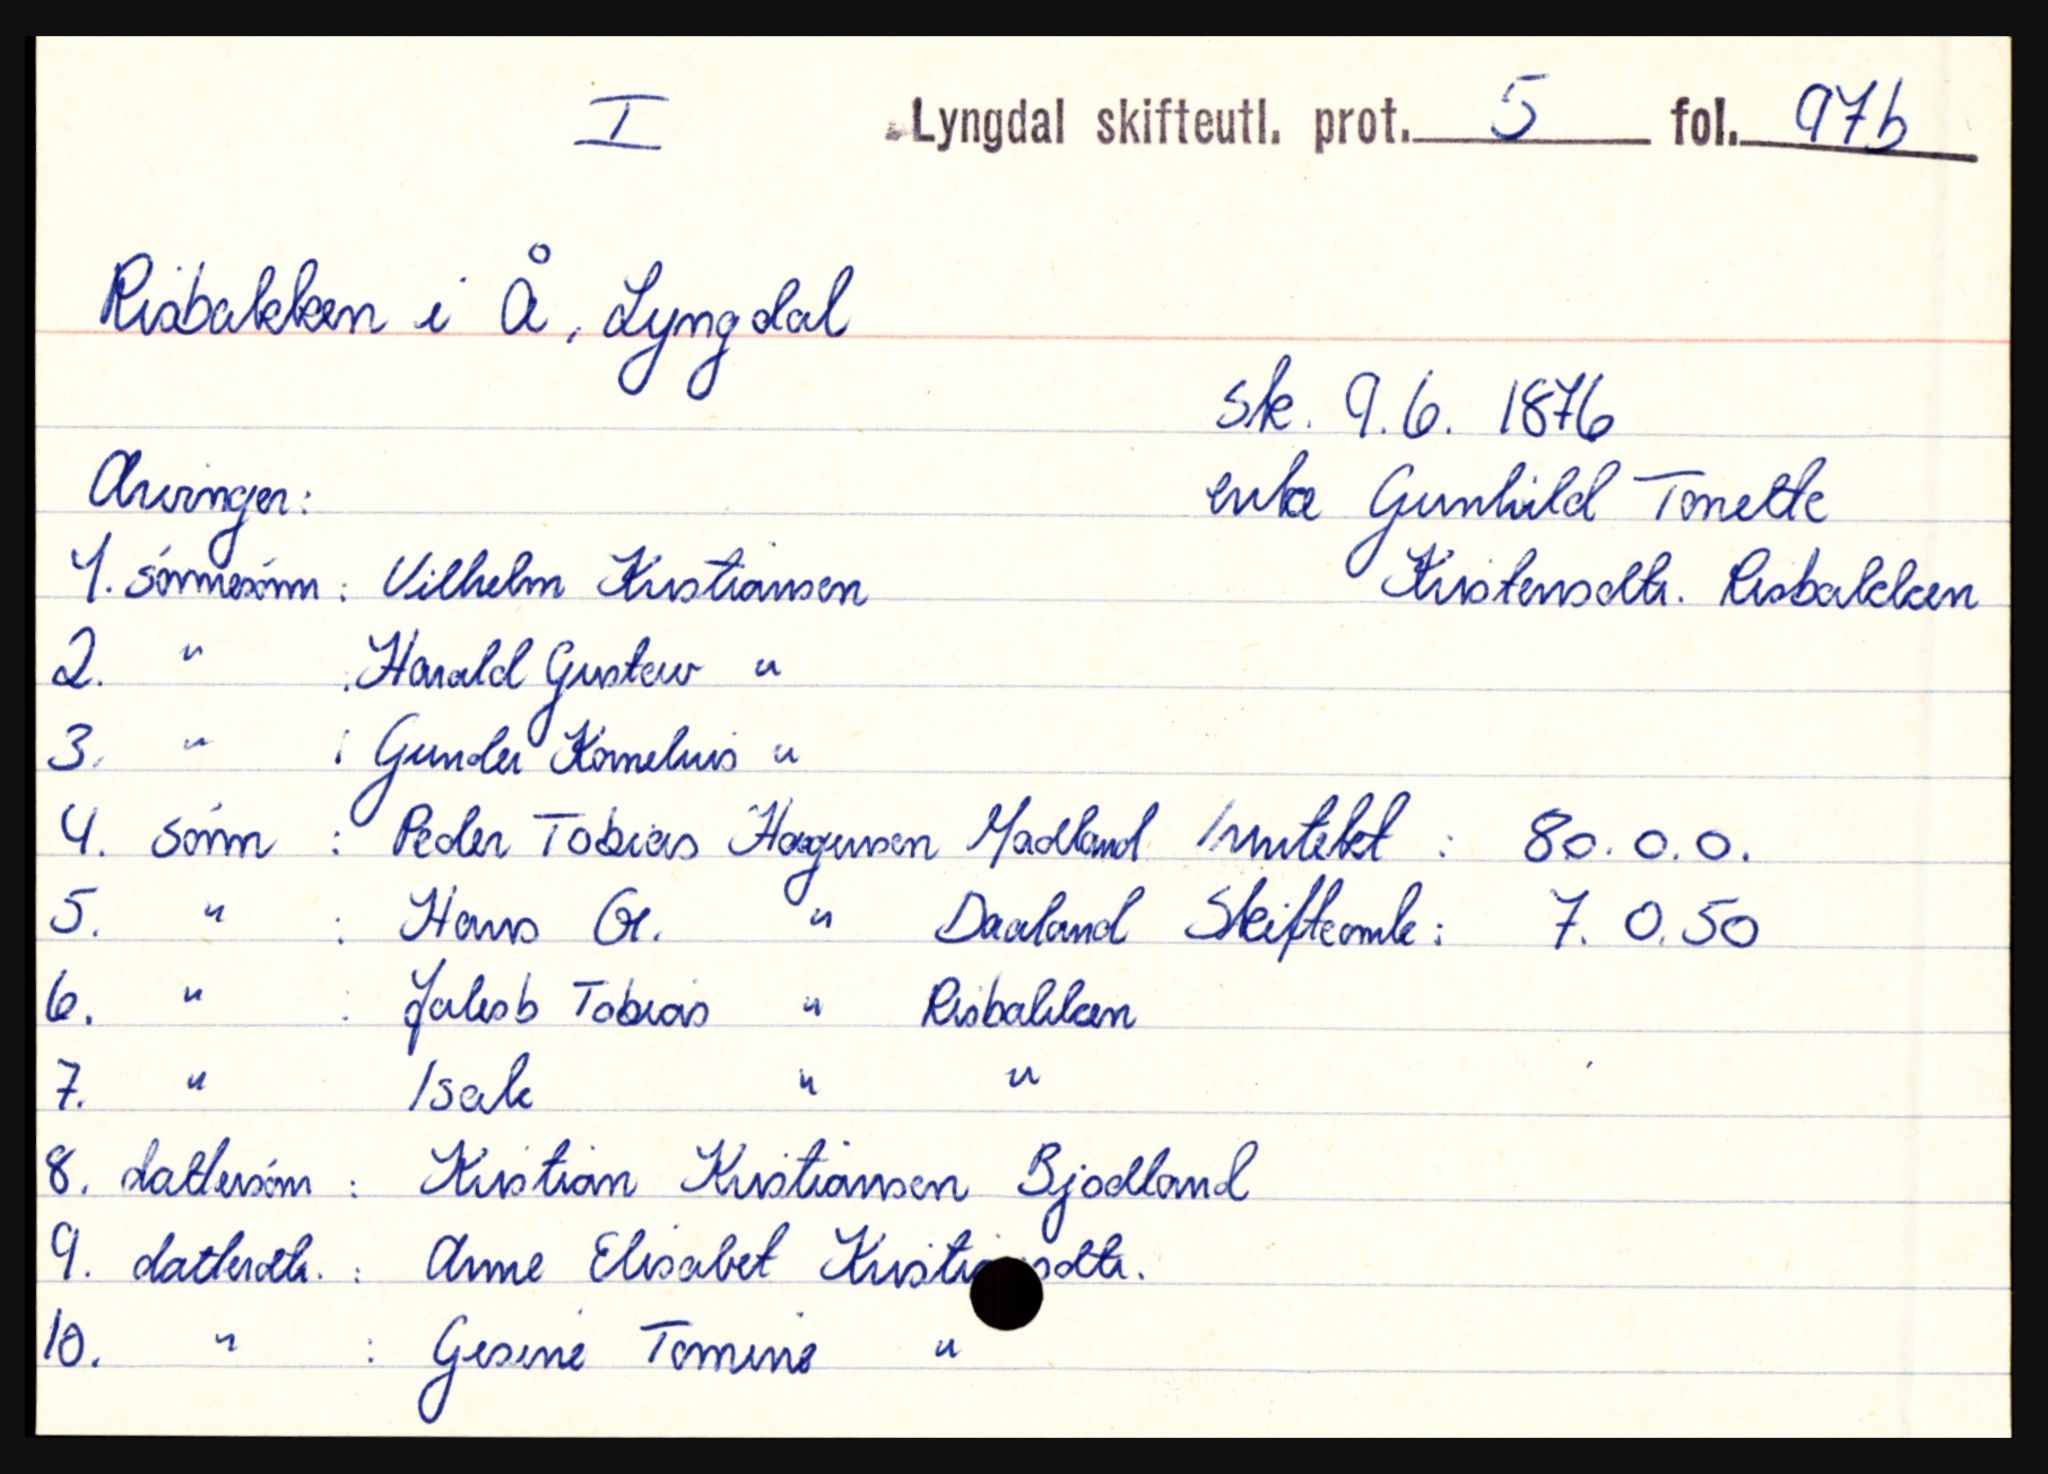 I Lyngdal skifteutl. prot. 5 fol. 97b
Risbakken i Å, Lyngdal
sk. 9.6. 1876
Arvinger: enke Gunhild Tonette
1. sønnesønn: Vilhelm Kristiansen Kristensdtr. Risbakken
2. " : Harald Gustav "
3. " : Gunder Kornelius "
4. sønn : Peder Tobias Hågensen Madland Inntekt : 80.0.0.
5. " : Hans G. " Daaland Skifteomk: 7. 0.50
6. " : Jakob Tobias " Risbakken
7. " Isak " "
8. dattersønn : Kristian Kristiansen Bjodland
9. datterdtr. : Anne Elisabet Kristiansdtr.
10. " : Gesine Tomine "